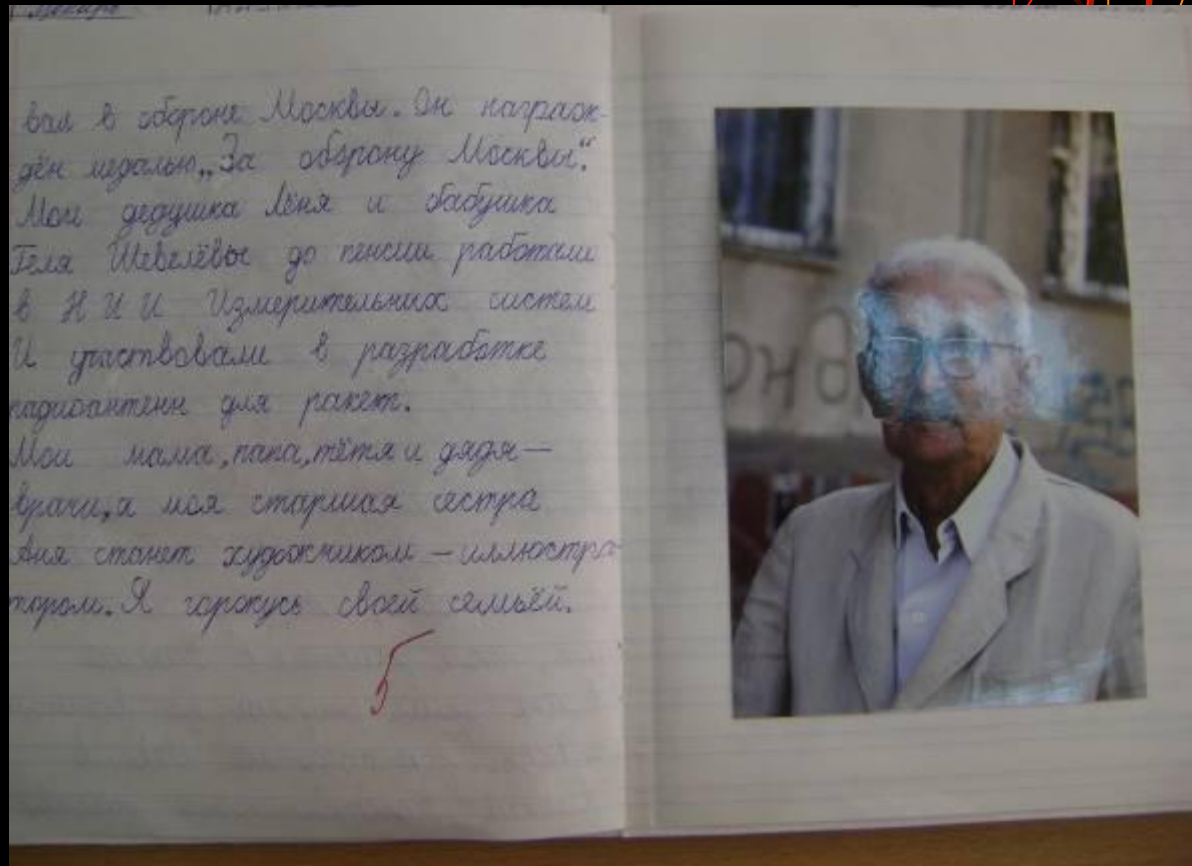 вал в обороне Москвы. Он награж-
дён медалью „За оборону Москвы“.
Мои дедушка Лёня и бабушка
Геля Шевелёвы до пенсии работали
в НИИ Измерительных систем
И участвовали в разработке
радиоантенн для ракет.
Мои мама, папа, тётя и дядя –
врачи, а моя старшая сестра
Аня станет художником – иллюстра-
тором. Я горжусь своей семьёй.
5
он